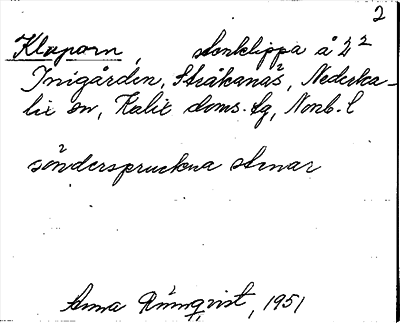 2
Klaporn, stenklippa å 2²
Inigården, Stråkanäs, Nederka-
lix sn, Kalix doms. tg, Norrb. l
sönderspruckna stenar
Anna Rönnqvist, 1951